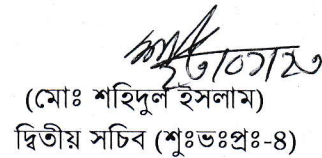 (মোঃ শহিদুল ইসলাম)
দ্বিতীয় সচিব (শুঃভঃপ্রঃ-৪)